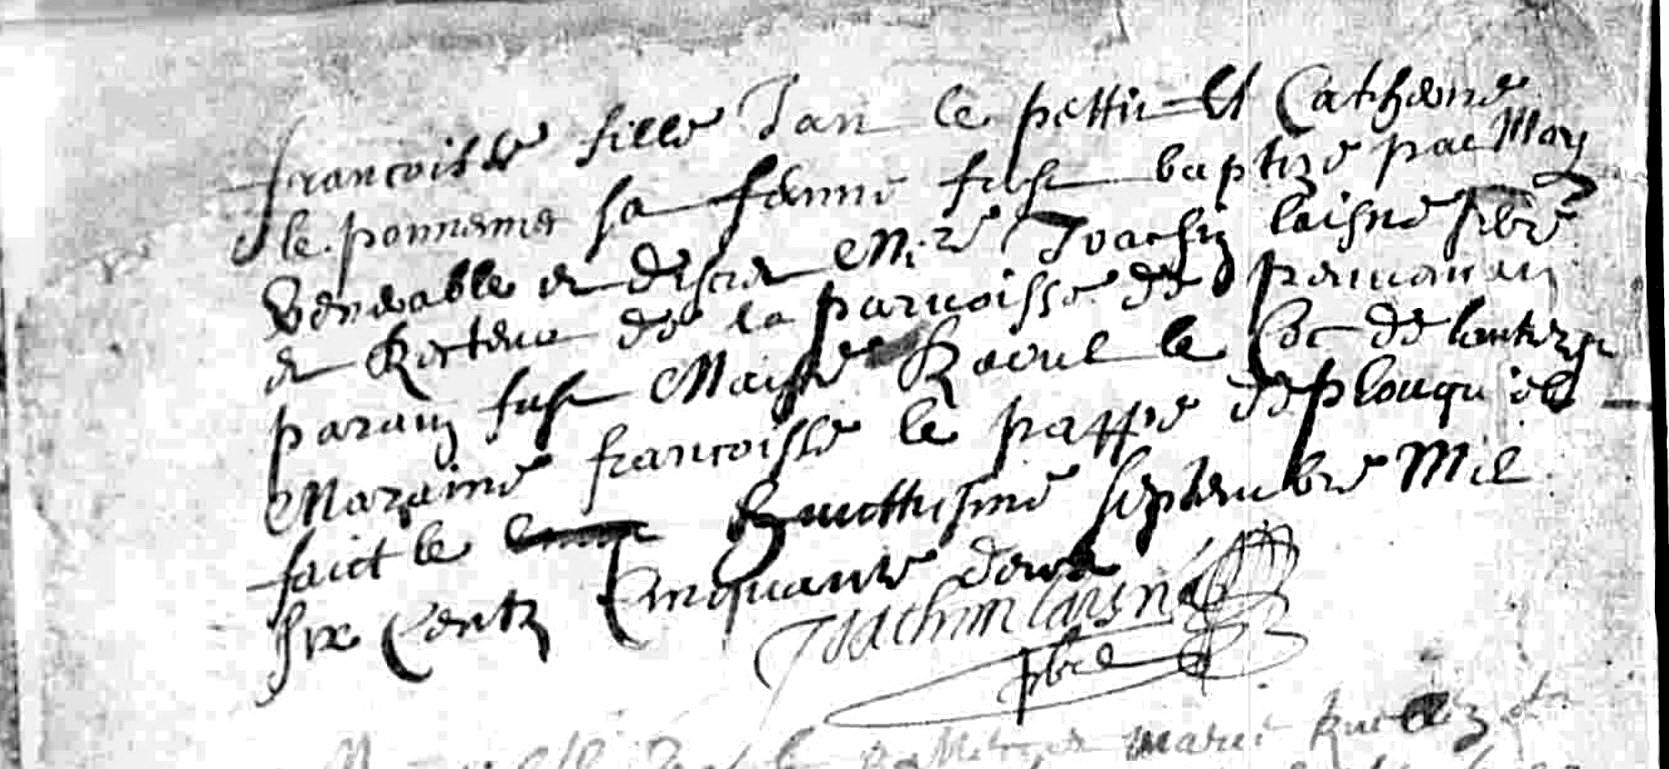 francoisse fille Jan le pettit Et Catherine
le ponnerner sa femme fust baptize par Moy
Venerable et discret Mire Joachin laisne pbre
et Recteur de la parroisse de penuenan
parain fust Maistre Raoul le Coc de lantreguer
Maraine francoisse le pappe de plouguiel
faict le huicttiesme septembre Mil
six Centz Cinquante deux
Joachim laisné
pbre